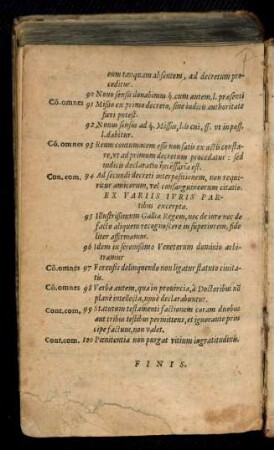 eum tanquam absentem, ad decretum proceditur.
90 Nouo sensu donabimus §. cum autem, l. præsenti
Cõ.omnes 91 Missio ex primo decreto, sine iudicis authoritate fieri potest.
92 Nouus sensus ad §. Missus, l. is cui, ff. vt in poss. l. dabitur.
Cõ.omnes 93 Reum contumacem esse non satis ex actis constare, vt ad primum decretum procedatur: sed iudicis declaratio necessaria est.
Con.com. 94 Ad secundi decreti interpositionem, non requiritur amicorum, vel consanguineorum citatio.
EX VARIIS IVRIS PARtibus excerpta.
95 Illustrissimum Galliæ Regem, nec de iure nec de facto aliquem recognoscere in superiorem, fideliter affirmamus.
96 Idem in serenissimo Venetorum dominio arbitramur
Cõ.omnes 97 Forensis delinquendo non ligatur statuto ciuitatis.
Cõ.omnes 98 Verba autem, quæ in prouincia, à Doctoribus nõ planè intellecta, nouè declarabuntur.
Cont.com. 99 Statutum testamenti factionem coram duobus aut tribus testibus permittens, et ignorante principe factum, non valet.
Cont.com. 100 Pœnitentia non purgat vitium ingratitudinis.
FINIS.